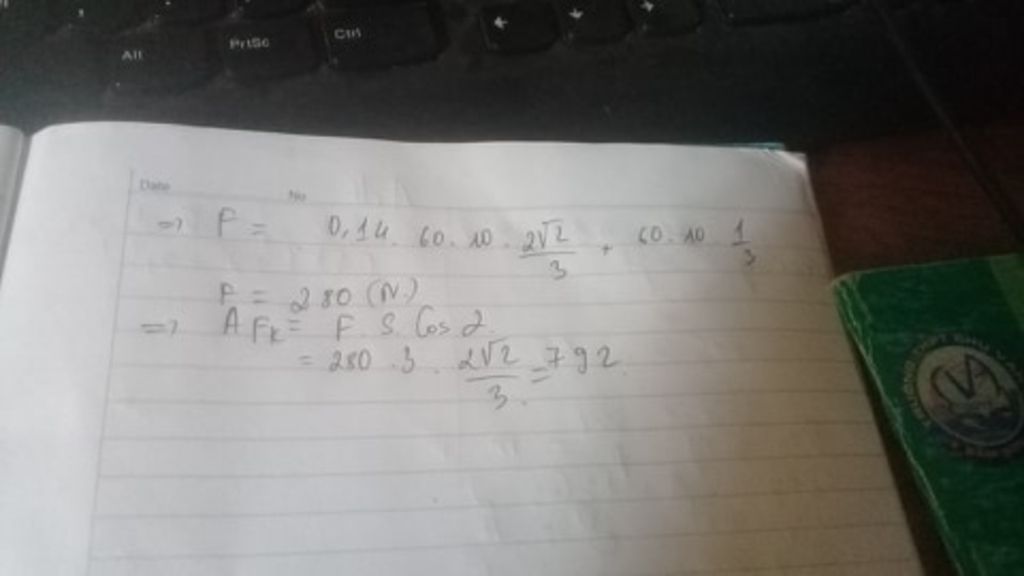 Alt PrtSc Ctrl
Date No
=> F = 0,14. 60. 10. 2√2/3 + 60. 10 1/3
F = 280 (N.)
=> A Fk = F S. Cos α.
= 280. 3. 2√2/3 = 792.